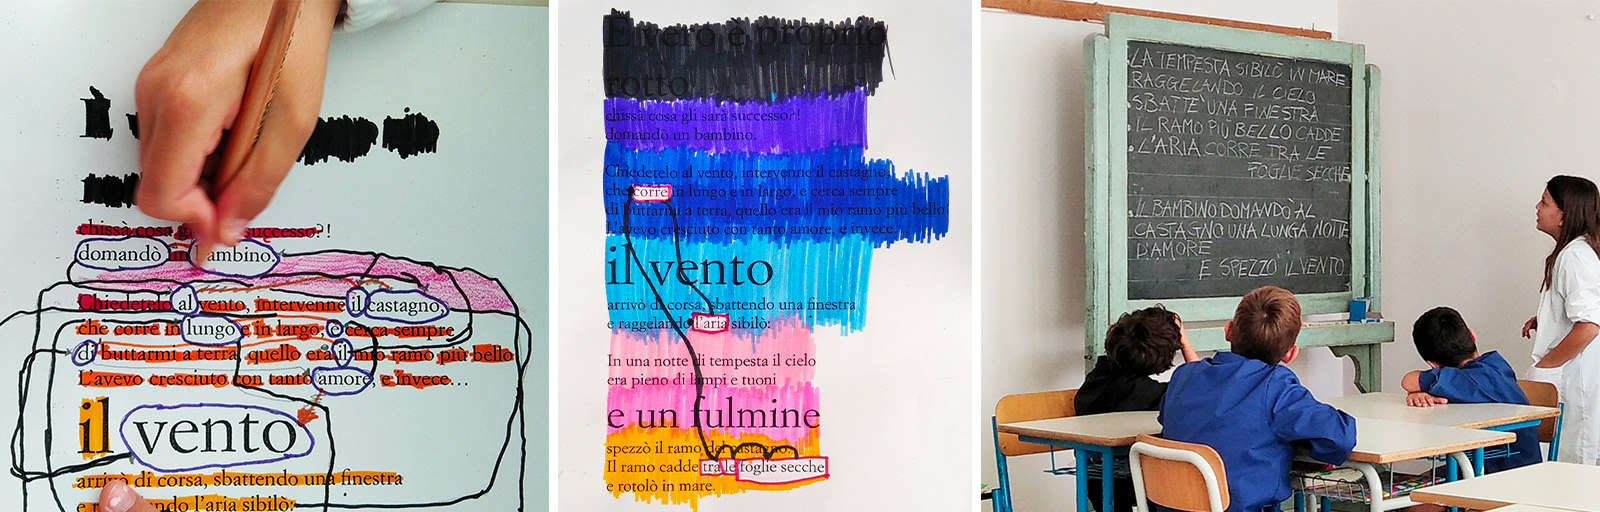 chissà cosa gli sarà successo?!
domandò un bambino.
Chiedetelo al vento, intervenne il castagno,
che corre in lungo e in largo, e cerca sempre
di buttarmi a terra, quello era il mio ramo più bello
L'avevo cresciuto con tanto amore, e invece...
il vento
arrivò di corsa, sbattendo una finestra
e raggelando l'aria sibilò:
E vero è proprio
rotto
chissà cosa gli sarà successo?!
domandò un bambino.
Chiedetelo al vento, intervenne il castagno,
che corre in lungo e in largo, e cerca sempre
di buttarmi a terra, quello era il mio ramo più bello
L'avevo cresciuto con tanto amore, e invece...
il vento
arrivò di corsa, sbattendo una finestra
e raggelando l'aria sibilò:
In una notte di tempesta il cielo
era pieno di lampi e tuoni
e un fulmine
spezzò il ramo del castagno.
Il ramo cadde tra le foglie secche
e rotolò in mare.
LA TEMPESTA SIBILÒ IN MARE
RAGGELANDO IL CIELO
SBATTE UNA FINESTRA
IL RAMO PIÙ BELLO CADDE
L'ARIA CORRE TRA LE
FOGLIE SECCHE
IL BAMBINO DOMANDÒ AL
CASTAGNO UNA LUNGA NOTTE
D'AMORE
E SPEZZÒ IL VENTO